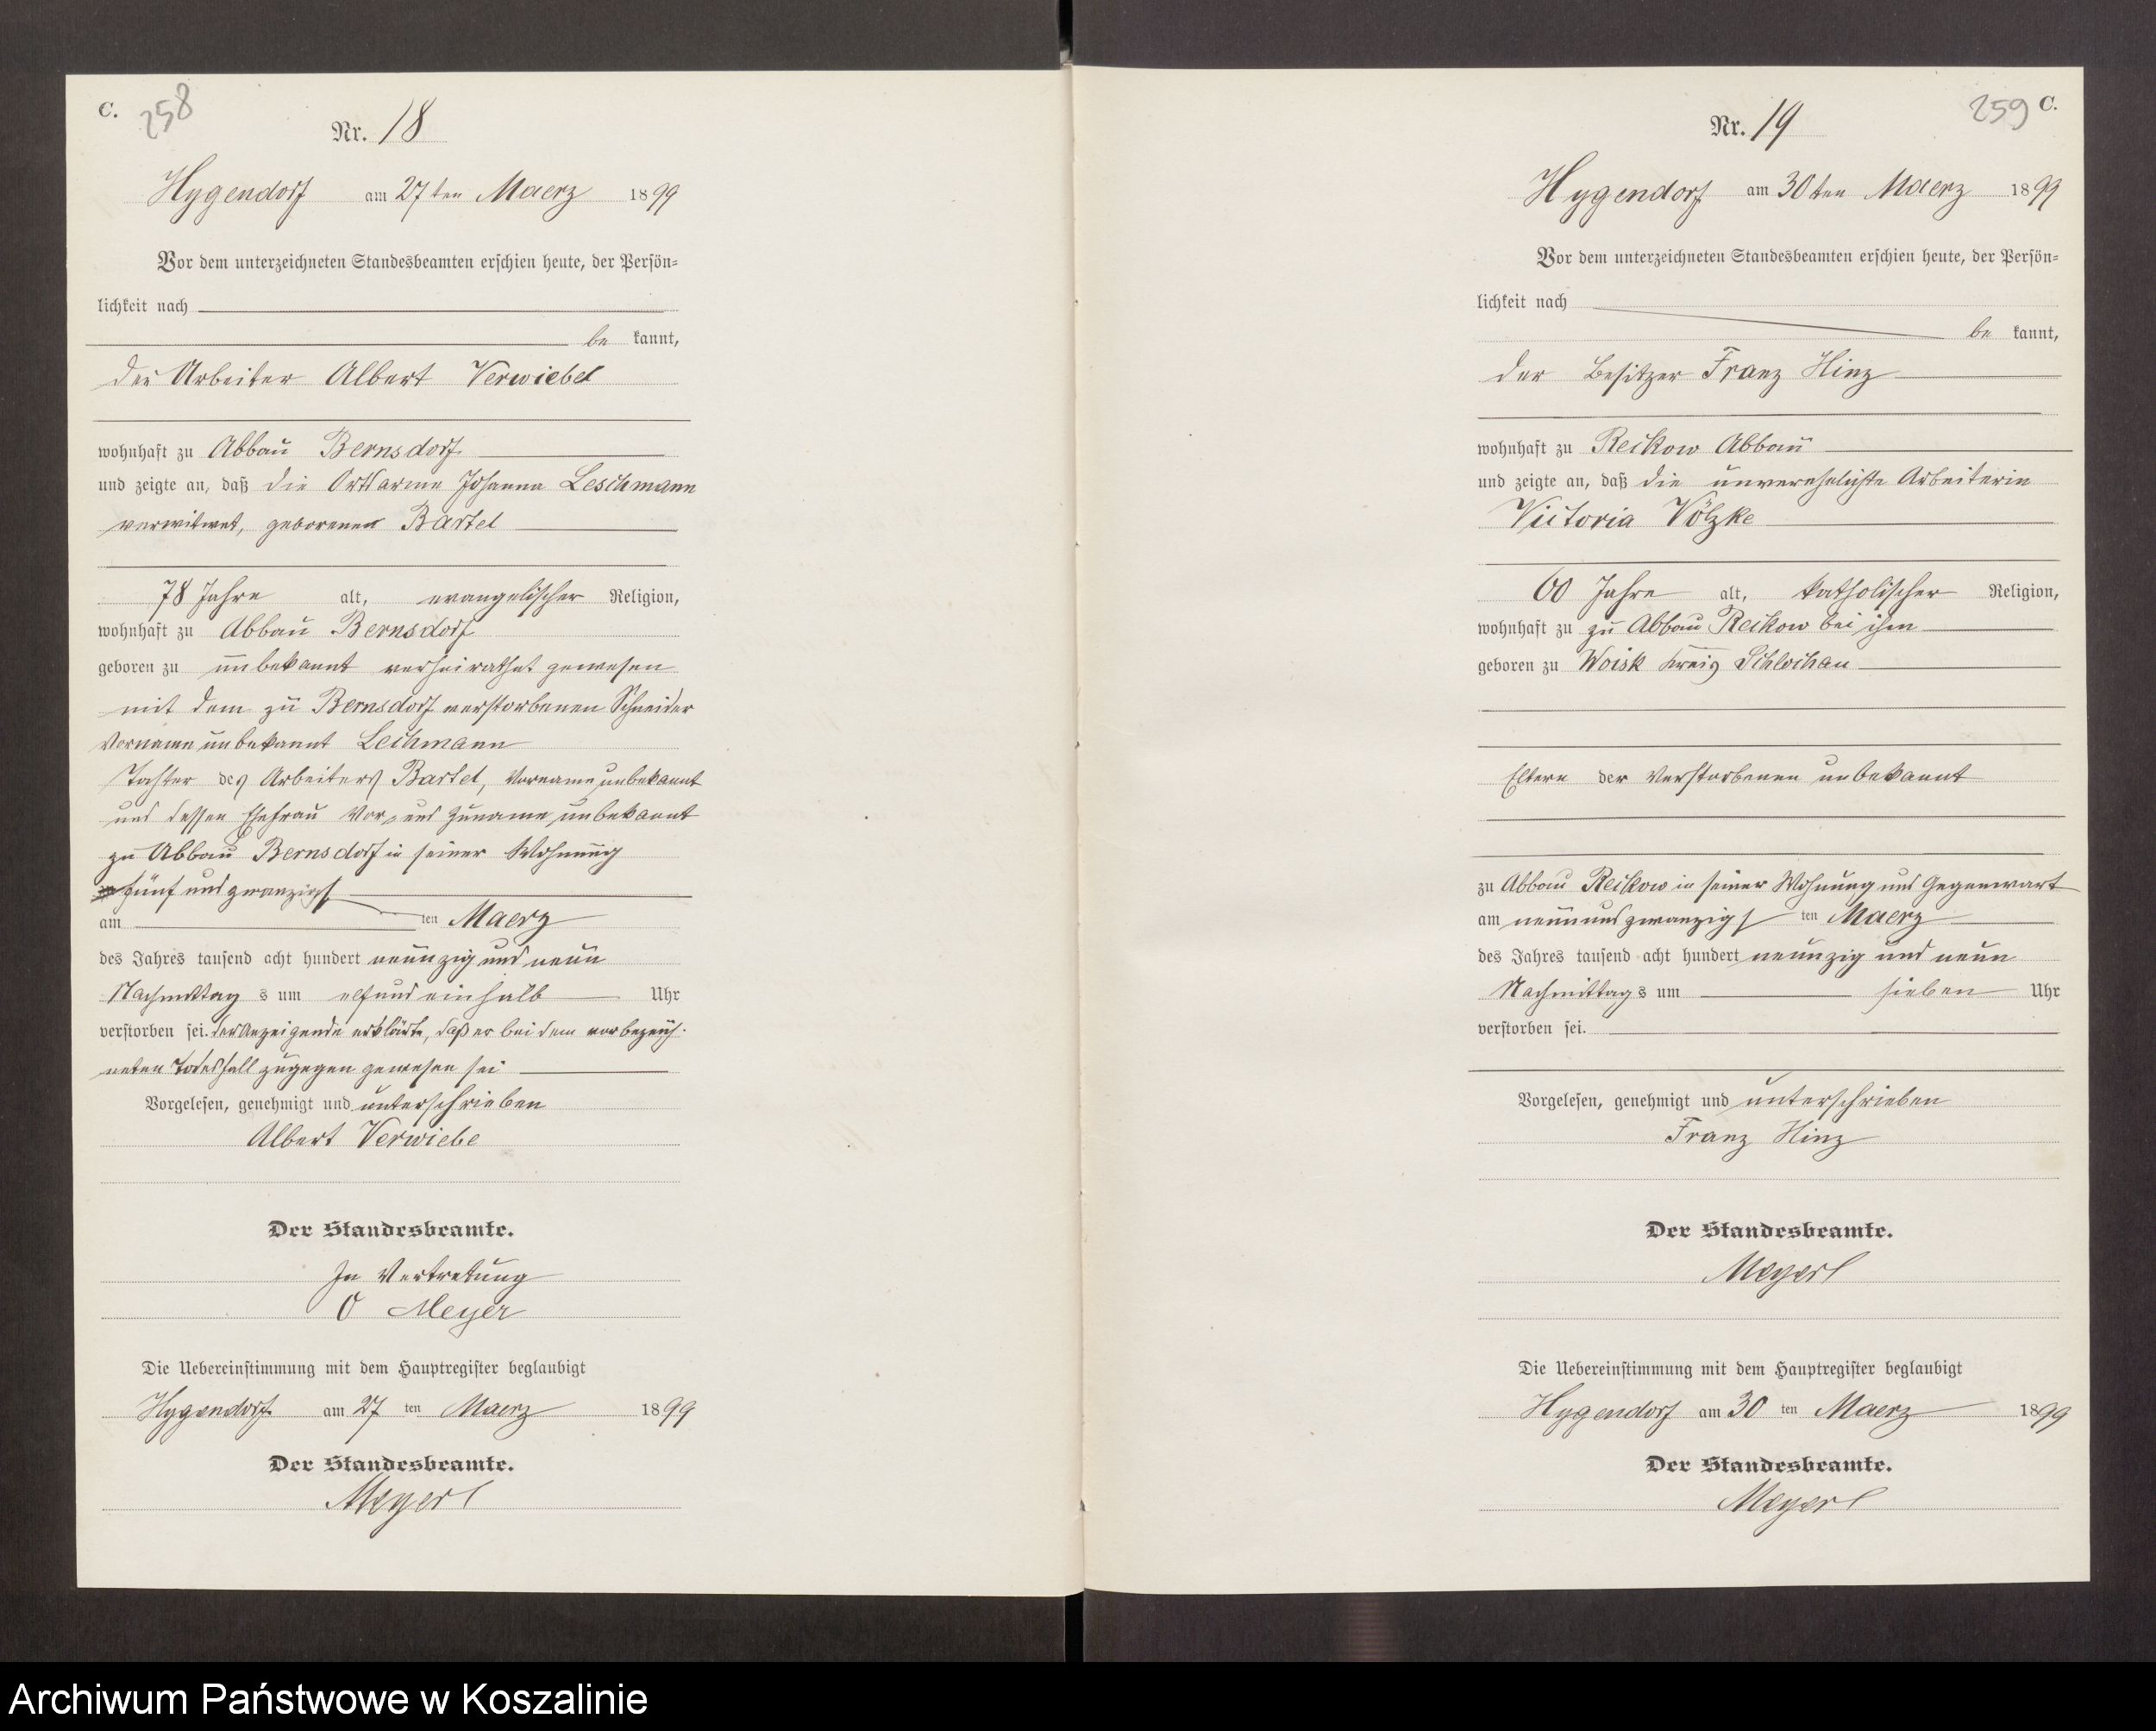 C. 258
Nr. 18
Hygendorf am 27ten Maerz 1899
Vor dem unterzeichneten Standesbeamten erschien heute, der Persön=
lichkeit nach
be kannt,
der Arbeiter Albert Verwiebe
wohnhaft zu Abbau Bernsdorf
und zeigte an, daß die Ortsarme Johanna Leschmann
verwitwet, geborenen Bartel
78 Jahre alt, evangelischer Religion,
wohnhaft zu Abbau Bernsdorf
geboren zu unbekannt verheirathet gewesen
mit dem zu Bernsdorf verstorbenen Schneider
Vorname unbekannt Leihmann
Tochter des Arbeiters Bartel, Vorname unbekannt
und dessen Ehefrau Vor- und Zuname unbekannt
zu Abbau Bernsdorf in seiner Wohnung
fünf und zwanzigs
am ten Maerz
des Jahres tausend acht hundert neunzig und neun
Nachmittag s um elf und ein halb Uhr
verstorben sei. der Anzeigende erklärte, daß er bei dem vorbezeich-
neten Todesfall zugegen gewesen sei
Vorgelesen, genehmigt und unterschrieben
Albert Verwiebe
Der Standesbeamte.
In Vertretung
O Meyer
Die Uebereinstimmung mit dem Hauptregister beglaubigt
Hygendorf am 27 ten Maerz 1899
Der Standesbeamte.
Meyer
259 C.
Nr. 19
Hygendorf am 30ten Maerz 1899
Vor dem unterzeichneten Standesbeamten erschien heute, der Persön=
lichkeit nach
be kannt,
der Besitzer Franz Hinz
wohnhaft zu Reckow Abbau
und zeigte an, daß die unverehelichte Arbeiterin
Victoria Völzke
60 Jahre alt, katholischer Religion,
wohnhaft zu zu Abbau Reckow bei ihm
geboren zu Woisk Kreis Schlochau
Eltern der Verstorbenen unbekannt
zu Abbau Reckow in seiner Wohnung und Gegenwart
am neunundzwanzigs ten Maerz
des Jahres tausend acht hundert neunzig und neun
Nachmittag s um sieben Uhr
verstorben sei.
Vorgelesen, genehmigt und unterschrieben
Franz Hinz
Der Standesbeamte.
Meyer
Die Uebereinstimmung mit dem Hauptregister beglaubigt
Hygendorf am 30 ten Maerz 1899
Der Standesbeamte.
Meyer
Archiwum Państwowe w Koszalinie